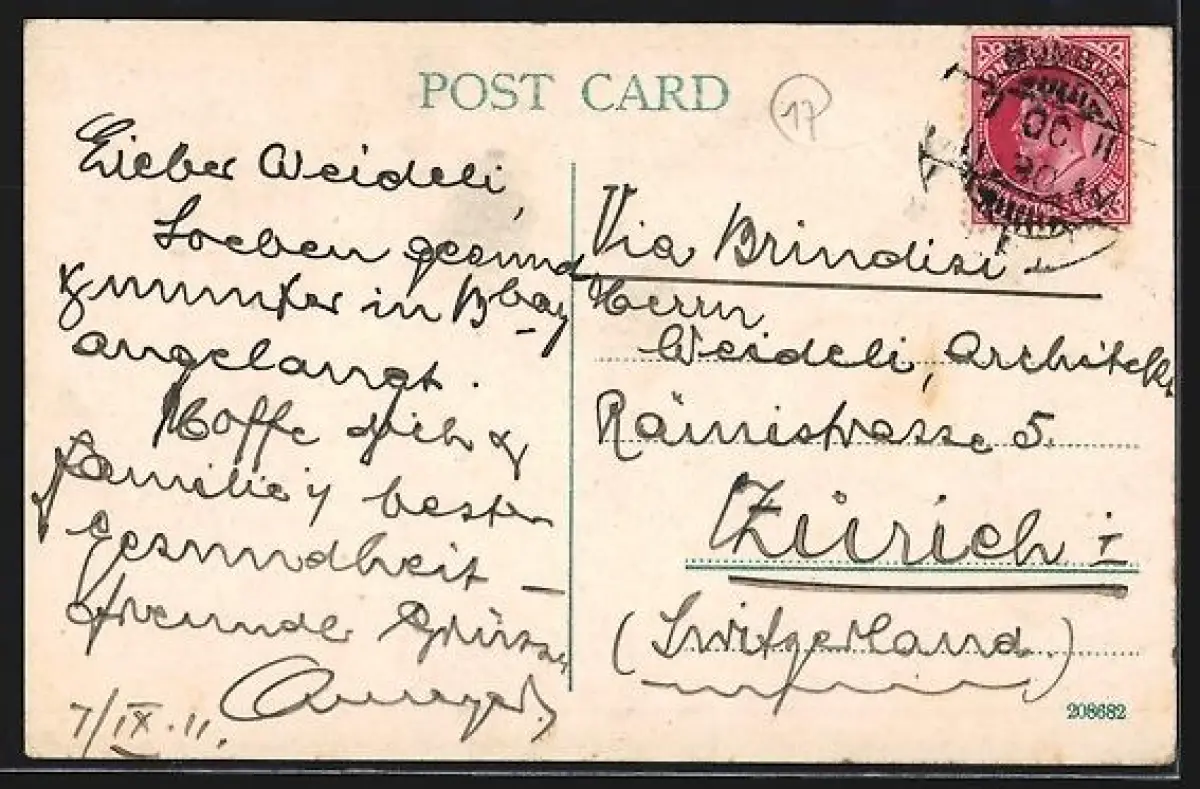 POST CARD
17
Lieber Weideli,
Soeben gesund
& munter in Bbay
angelangt.
Hoffe Dich &
Familie in bester
Gesundheit –
Freundl Grüsse
7/IX.11.
BOMBAY
OC 11
Via Brindisi
Herrn
Weideli, Architekt
Rämistrasse 5.
Zürich I
(Switzerland.)
208682